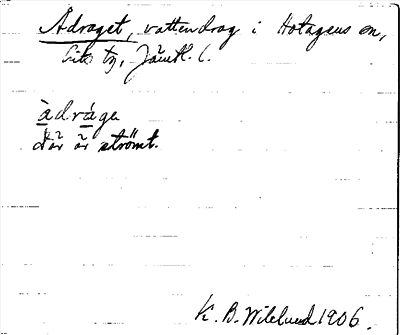 Ådraget, vattendrag i Hotagens sn,
Lits tg, Jämtl. l.
àdrága
där är strömt.
K. B. Wiklund 1906.